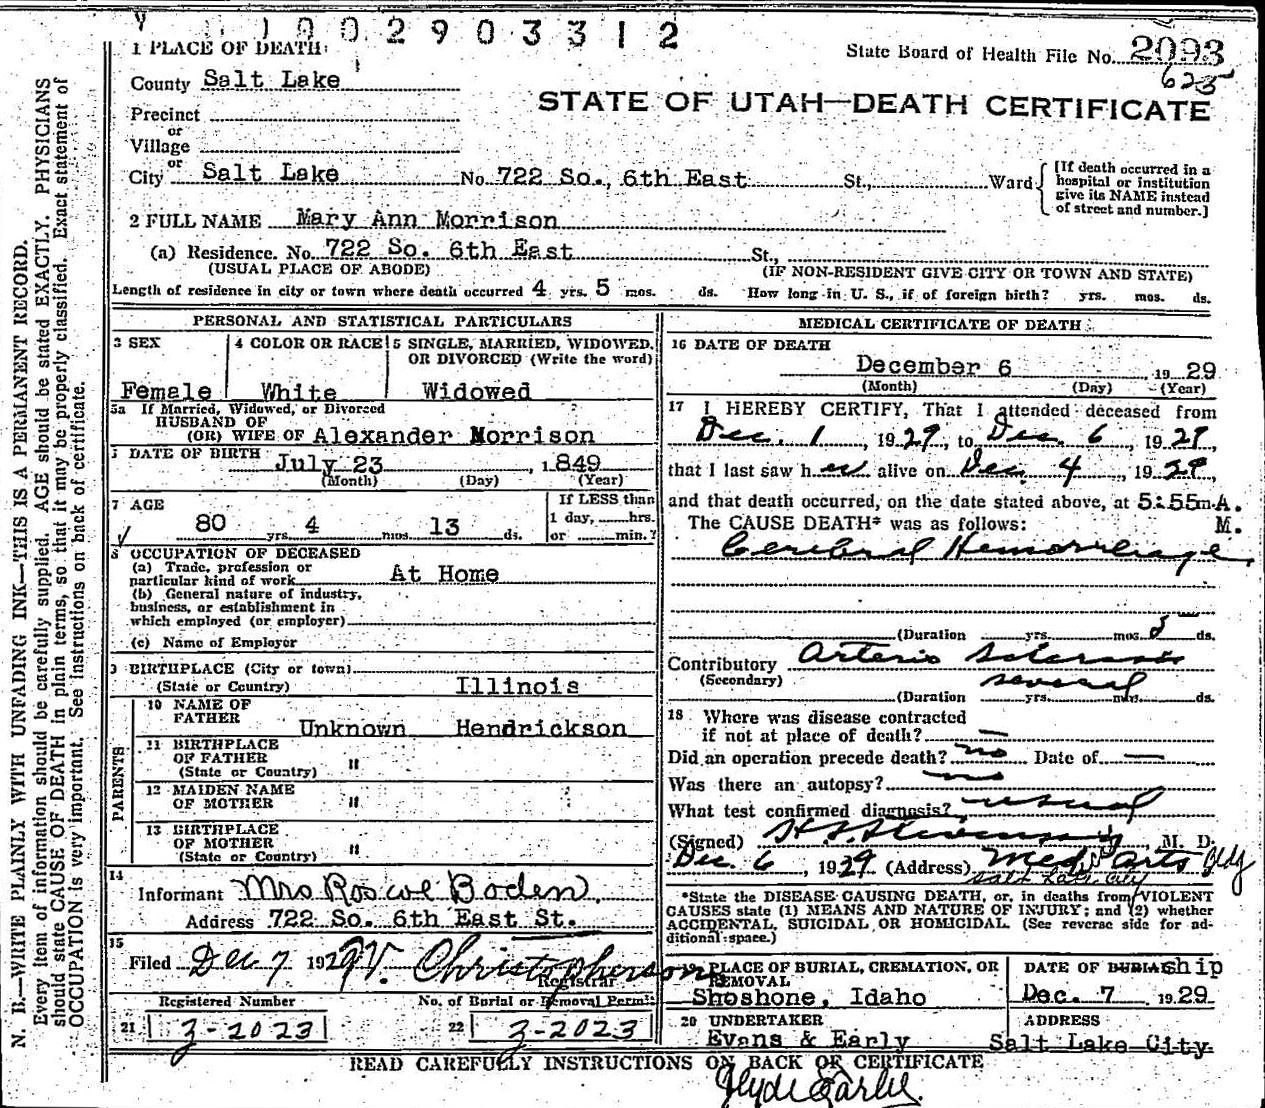 1 0 0 2 9 0 3 3 1 2
1 PLACE OF DEATH: State Board of Health File No. 2093
County Salt Lake 625
STATE OF UTAH—DEATH CERTIFICATE
Precinct
or
Village
or
City Salt Lake No. 722 So., 6th East St., Ward
[If death occurred in a
hospital or institution
give its NAME instead
of street and number.]
2 FULL NAME Mary Ann Morrison
(a) Residence. No. 722 So. 6th East St.,
(USUAL PLACE OF ABODE) (IF NON-RESIDENT GIVE CITY OR TOWN AND STATE)
Length of residence in city or town where death occurred 4 yrs. 5 mos. ds. How long in U. S., if of foreign birth? yrs. mos. ds.
PERSONAL AND STATISTICAL PARTICULARS
3 SEX 4 COLOR OR RACE 5 SINGLE, MARRIED, WIDOWED,
OR DIVORCED (Write the word)
Female White Widowed
5a If Married, Widowed, or Divorced
HUSBAND OF
(OR) WIFE OF Alexander Morrison
DATE OF BIRTH July 23, 1849
(Month) (Day) (Year)
7 AGE If LESS than
1 day, hrs.
80 yrs. 4 mos. 13 ds. or min.?
8 OCCUPATION OF DECEASED
(a) Trade, profession or
particular kind of work At Home
(b) General nature of industry,
business, or establishment in
which employed (or employer)
(c) Name of Employer
9 BIRTHPLACE (City or town)
(State or Country) Illinois
PARENTS
10 NAME OF
FATHER Unknown Hendrickson
11 BIRTHPLACE
OF FATHER "
(State or Country)
12 MAIDEN NAME
OF MOTHER "
13 BIRTHPLACE
OF MOTHER "
(State or Country)
14
Informant Mrs Roscoe Boden,
Address 722 So. 6th East St.
15
Filed Dec 7 1929 V. Christopherson
Registrar
Registered Number No. of Burial or Removal Permit
21 3-2023 22 3-2023
MEDICAL CERTIFICATE OF DEATH
16 DATE OF DEATH
December 6, 1929
(Month) (Day) (Year)
17 I HEREBY CERTIFY, That I attended deceased from
Dec. 1, 1929, to Dec. 6, 1929,
that I last saw her alive on Dec. 4, 1929,
and that death occurred, on the date stated above, at 5:55m A.
The CAUSE DEATH* was as follows: M.
Cerebral Hemorrhage
(Duration yrs. mos. 5 ds.
Contributory Arterio Sclerosis
(Secondary) several
(Duration yrs. mos. ds.
18 Where was disease contracted
if not at place of death? —
Did an operation precede death? no Date of —
Was there an autopsy? no
What test confirmed diagnosis? usual
(Signed) H. S. Stevenson, M. D.
Dec. 6, 1929 (Address) Med. Arts Bldg
Salt Lake City
*State the DISEASE CAUSING DEATH, or, in deaths from VIOLENT
CAUSES state (1) MEANS AND NATURE OF INJURY; and (2) whether
ACCIDENTAL, SUICIDAL OR HOMICIDAL. (See reverse side for ad-
ditional space.)
19 PLACE OF BURIAL, CREMATION, OR
REMOVAL
Shoshone, Idaho
DATE OF BURIAL ship
Dec. 7 1929
20 UNDERTAKER ADDRESS
Evans & Early Salt Lake City.
READ CAREFULLY INSTRUCTIONS ON BACK OF CERTIFICATE
Clyde Earley.
N. B.—WRITE PLAINLY WITH UNFADING INK—THIS IS A PERMANENT RECORD.
Every item of information should be carefully supplied. AGE should be stated EXACTLY. PHYSICIANS
should state CAUSE OF DEATH in plain terms, so that it may be properly classified. Exact statement of
OCCUPATION is very important. See instructions on back of certificate.